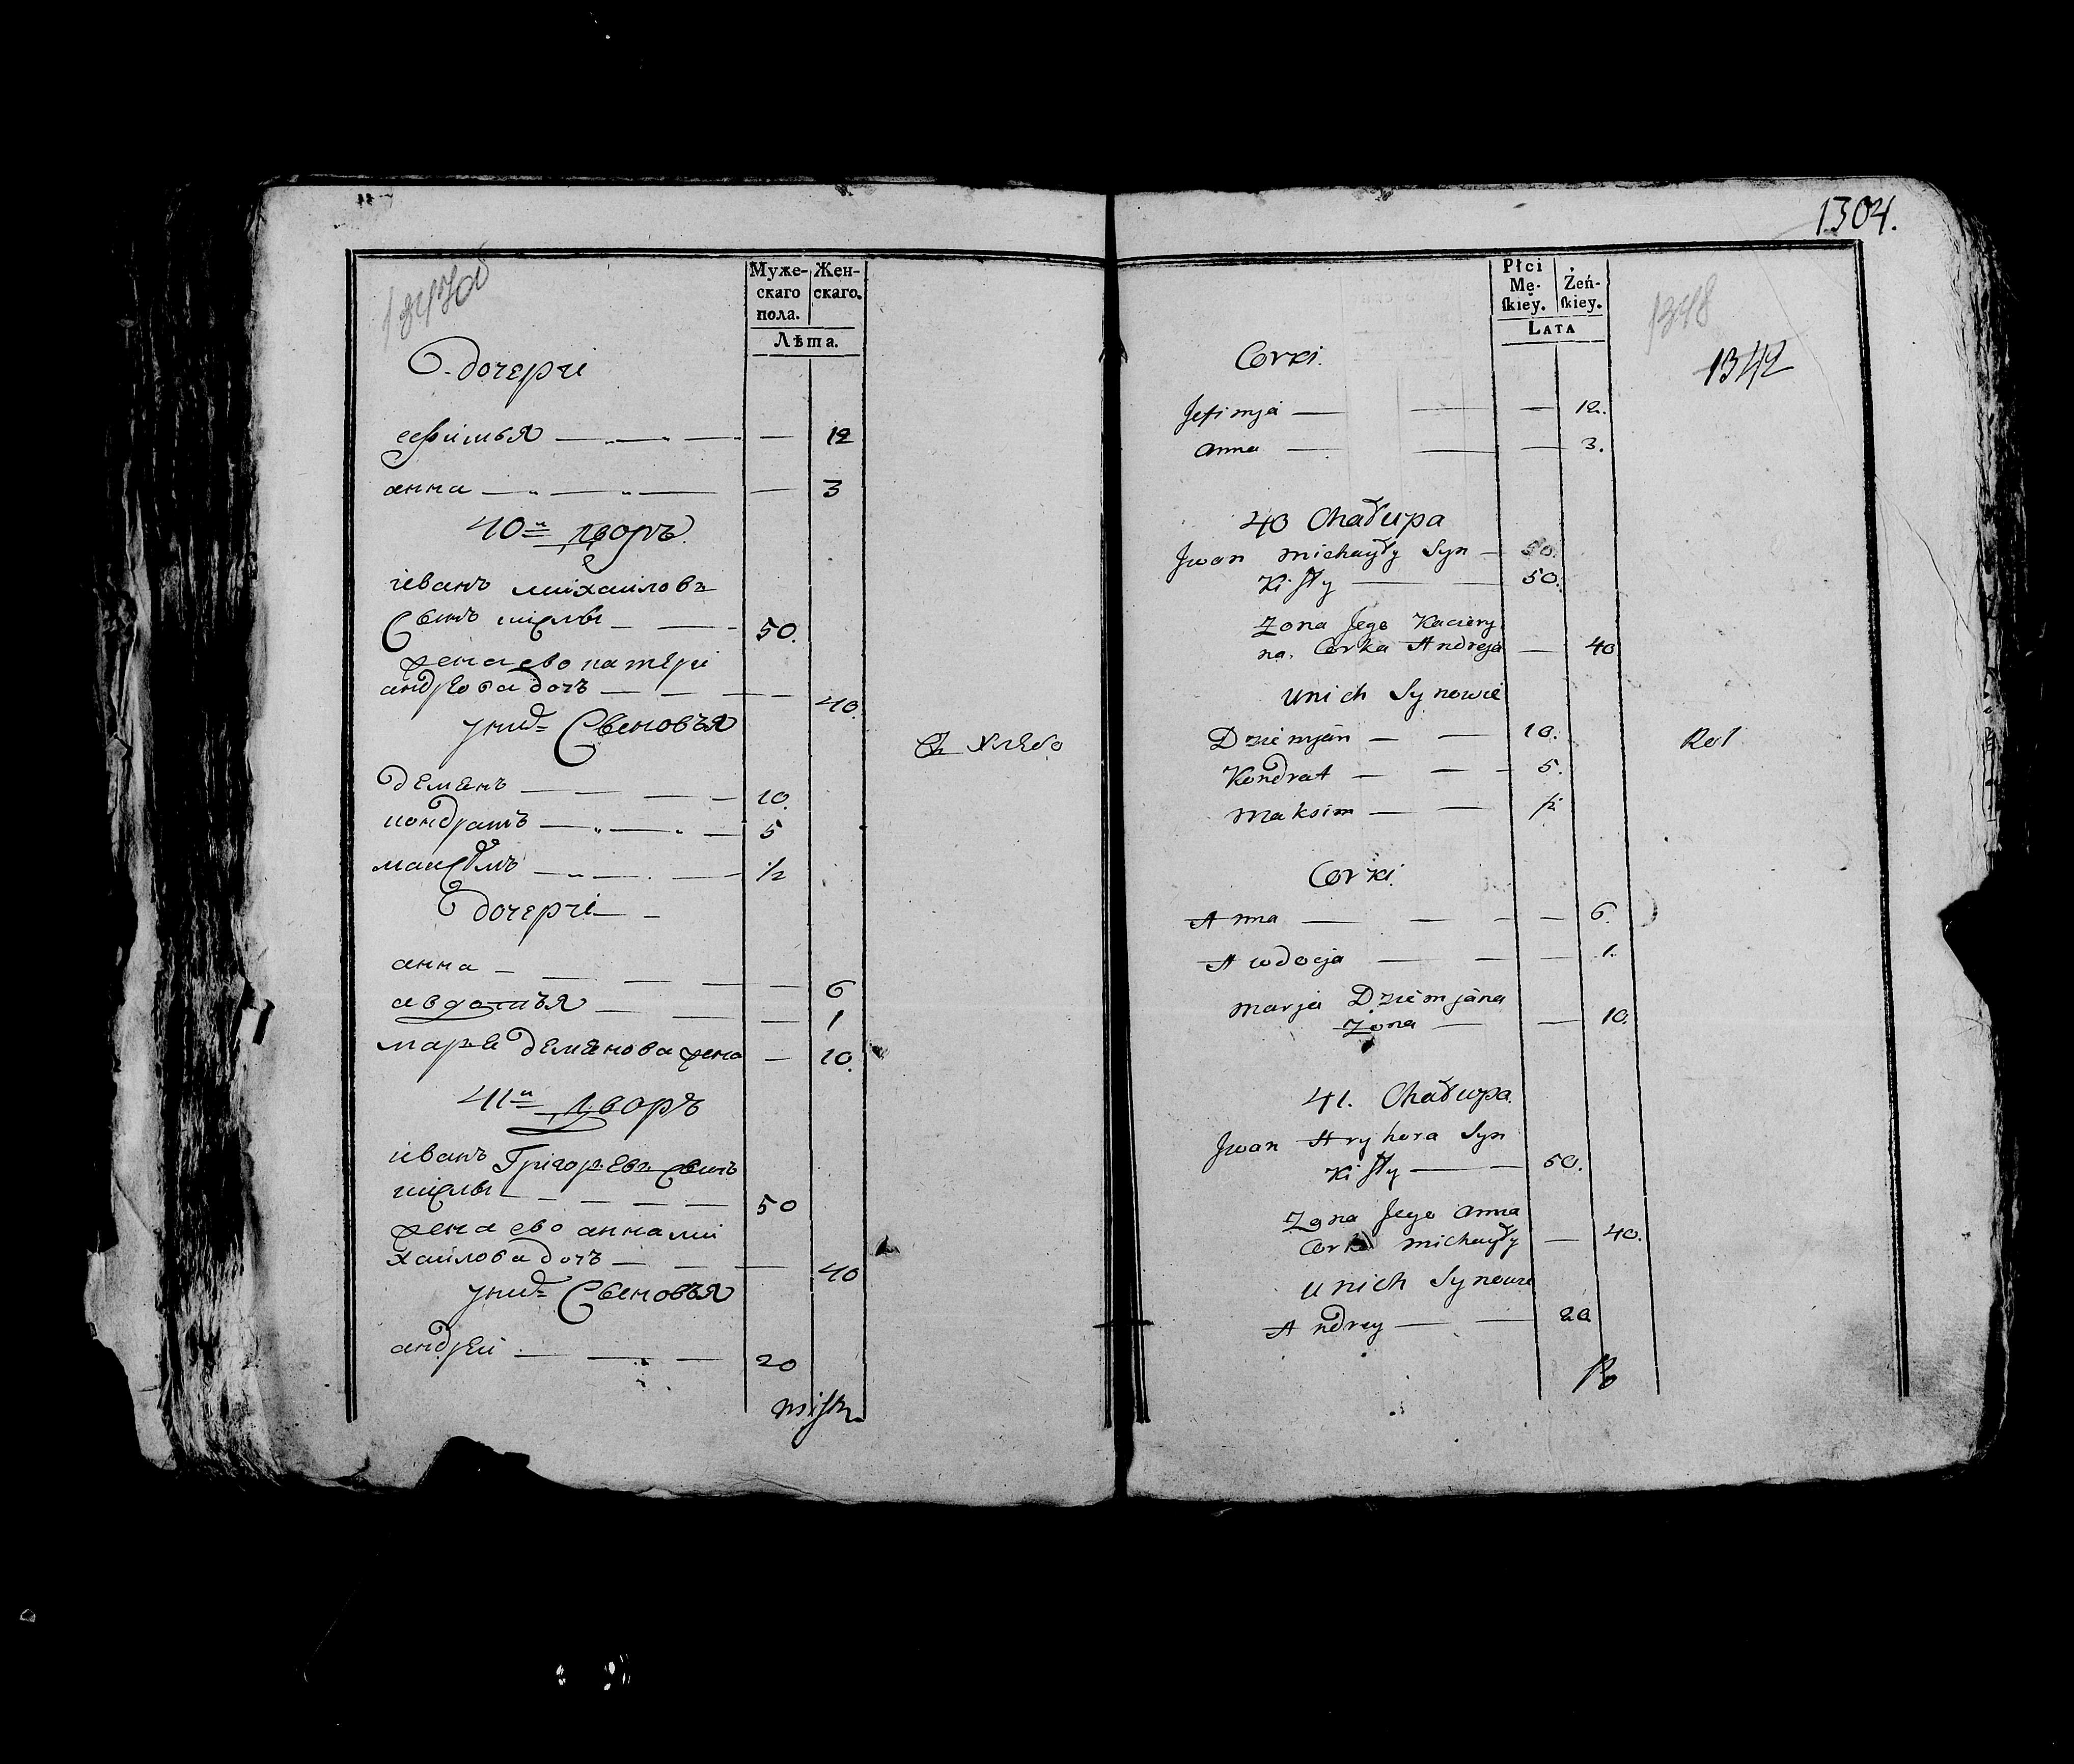 1347об
Муже-
скаго
пола.
Жен-
скаго.
Лѣта.
дочерчи
ефимья 12
анна 3
40й дворъ
иванъ михаилов
сынъ кислы 50.
жена ево катери
андреова доч 40.
у них сыновья
демянъ 10.
кондратъ 5
максимъ 1/2
дочерчи
анна 6
авдотья 1
маръя демянова жена 10.
41й дворъ
иванъ Григоревъ сынъ
кислы 50
жена ево анна ми
хаилова доч 40
у них сыновья
андреи 20
1304.
Płci
Mę-
ſkiey.
Żeń-
ſkiey.
LATA
1348
1342
Corki.
Jefimja 12.
Anna 3.
40 Chałupa
Jwan Michayły Syn 50.
Kisły 50.
Zona Jego Kaciery
na. Corka Andreja 40
unich Synowie
Dziemjan 10.
Kondrat 5.
Maksim 1/2
Corki.
Anna 6.
Awdocja 1.
Marja Dziemjana
Zona 10.
41. Chałupa.
Jwan Hryhora Syn
Kisły 50.
Zona Jego Anna
Corka Michayły 40.
unich Synowie
Andrey 20